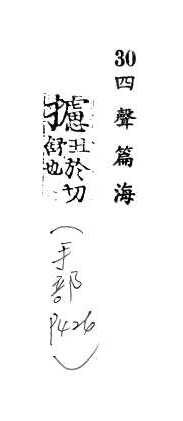 30四聲篇海
攄丑於切
舒也
(手部
P426)